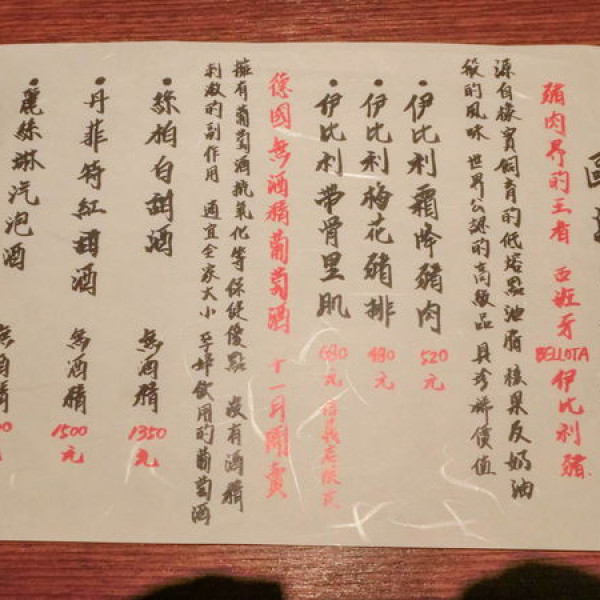 豬肉界的王者 西班牙BELLOTA伊比利豬
源自橡實飼育的低熔點油脂 核果及奶油
般的風味 世界公認的高級品 具珍稀價值
•伊比利霜降豬肉 520元
•伊比利梅花豬排 480元
•伊比利帶骨里肌 680元
德國無酒精葡萄酒 十一月開賣
擁有葡萄酒抗氧化等保健優點 沒有酒精
刺激的副作用 適宜全家大小 孕婦飲用的葡萄酒
•絲柏白甜酒 無酒精 1350元
•丹菲特紅甜酒 無酒精 1500元
•麗絲琳汽泡酒 無酒精